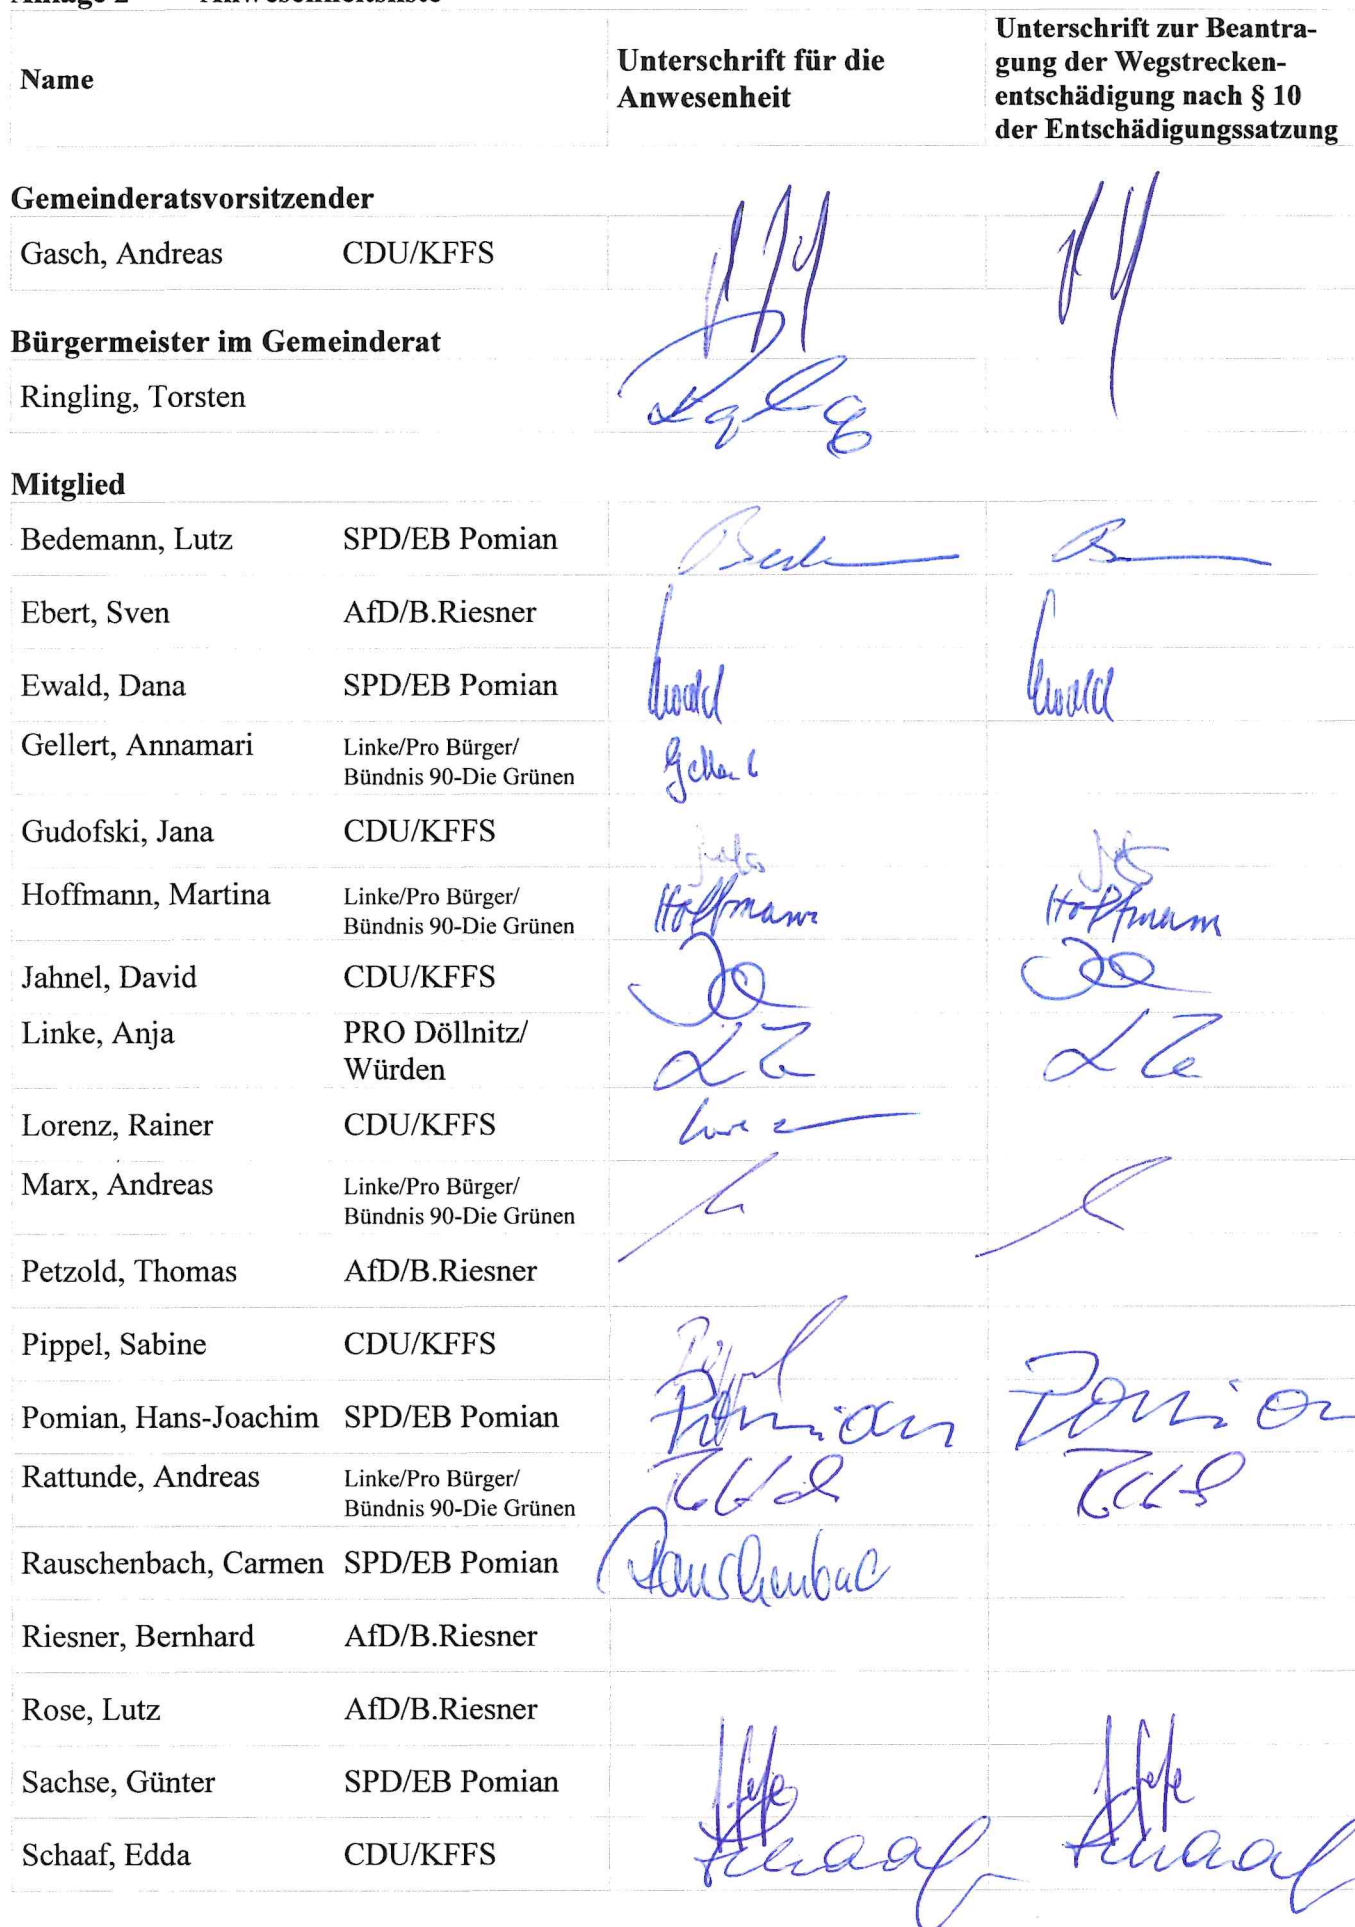 Anlage 2 Anwesenheitsliste
Name
Unterschrift für die
Anwesenheit
Unterschrift zur Beantra-
gung der Wegstrecken-
entschädigung nach § 10
der Entschädigungssatzung
Gemeinderatsvorsitzender
Gasch, Andreas CDU/KFFS
Bürgermeister im Gemeinderat
Ringling, Torsten
Mitglied
Bedemann, Lutz SPD/EB Pomian
Ebert, Sven AfD/B.Riesner
Ewald, Dana SPD/EB Pomian Ewald Ewald
Gellert, Annamari Linke/Pro Bürger/
Bündnis 90-Die Grünen Gellert
Gudofski, Jana CDU/KFFS
Hoffmann, Martina Linke/Pro Bürger/
Bündnis 90-Die Grünen Hoffmann Hoffmann
Jahnel, David CDU/KFFS
Linke, Anja PRO Döllnitz/
Würden
Lorenz, Rainer CDU/KFFS
Marx, Andreas Linke/Pro Bürger/
Bündnis 90-Die Grünen
Petzold, Thomas AfD/B.Riesner
Pippel, Sabine CDU/KFFS
Pomian, Hans-Joachim SPD/EB Pomian Pomian Pomian
Rattunde, Andreas Linke/Pro Bürger/
Bündnis 90-Die Grünen
Rauschenbach, Carmen SPD/EB Pomian Rauschenbach
Riesner, Bernhard AfD/B.Riesner
Rose, Lutz AfD/B.Riesner
Sachse, Günter SPD/EB Pomian
Schaaf, Edda CDU/KFFS Schaaf Schaaf